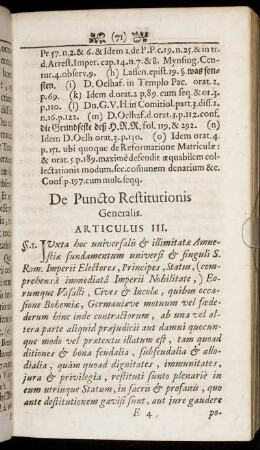 (71)
Pr. 57. n. 2. & 6. & Idem 1. de P. P. c. 19. n. 25. & in tr.
d. Arrest. Imper. cap. 14. n. 7. & 8. Mynsing. Cen-
tur. 4. observ. 9. (h) Lasen. epist. 19. §. was son-
sten. (i) D. Oelhaf. in Templo Pac. orat. 2.
p. 69. (k) Idem d. orat. 2. p. 89. cum seq. & or. 3.
p. 110. (l) Dn. G. V. H. in Comitiol. part. 3. diss. 2.
n. 16. p. 122. (m) D. Oelhaf. d. orat. 3. p. 112. conf.
die Grundfeste deß H. R. R. fol. 119. & 292. (n)
Idem D. Oelh. orat. 3. p. 110. (o) Idem orat. 4.
p. 171. ubi quoque de Reformatione Matriculæ:
& orat. 5. p. 189. maximè defendit æquabilem col-
lectationis modum, sec. communem denarium &c.
Conf. p. 197. cum mult. seqq.
De Puncto Restitutionis
Generalis.
ARTICULUS III.
§. 1. JUxta hoc universalis & illimitatæ Amne-
stiæ fundamentum universi & singuli S.
Rom. Imperii Electores, Principes, Status, (com-
prehensâ immediatâ Imperii Nobilitate,) Eo-
rumque Vasalli, Cives & Incolæ, quibus occa-
sione Bohemiæ, Germaniæve motuum vel fœde-
derum hinc inde contractorum, ab una vel al-
tera parte aliquid præjudicii aut damni quocun-
que modo vel prætextu illatum est, tam quoad
ditiones & bona feudalia, subfeudalia & allo-
dialia, quàm quoad dignitates, immunitates,
jura & privilegia, restituti sunto plenariè in
eum utrinque Statum, in sacris & profanis, quo
ante destitutionem gavisi sunt, aut jure gaudere
E 4
po-